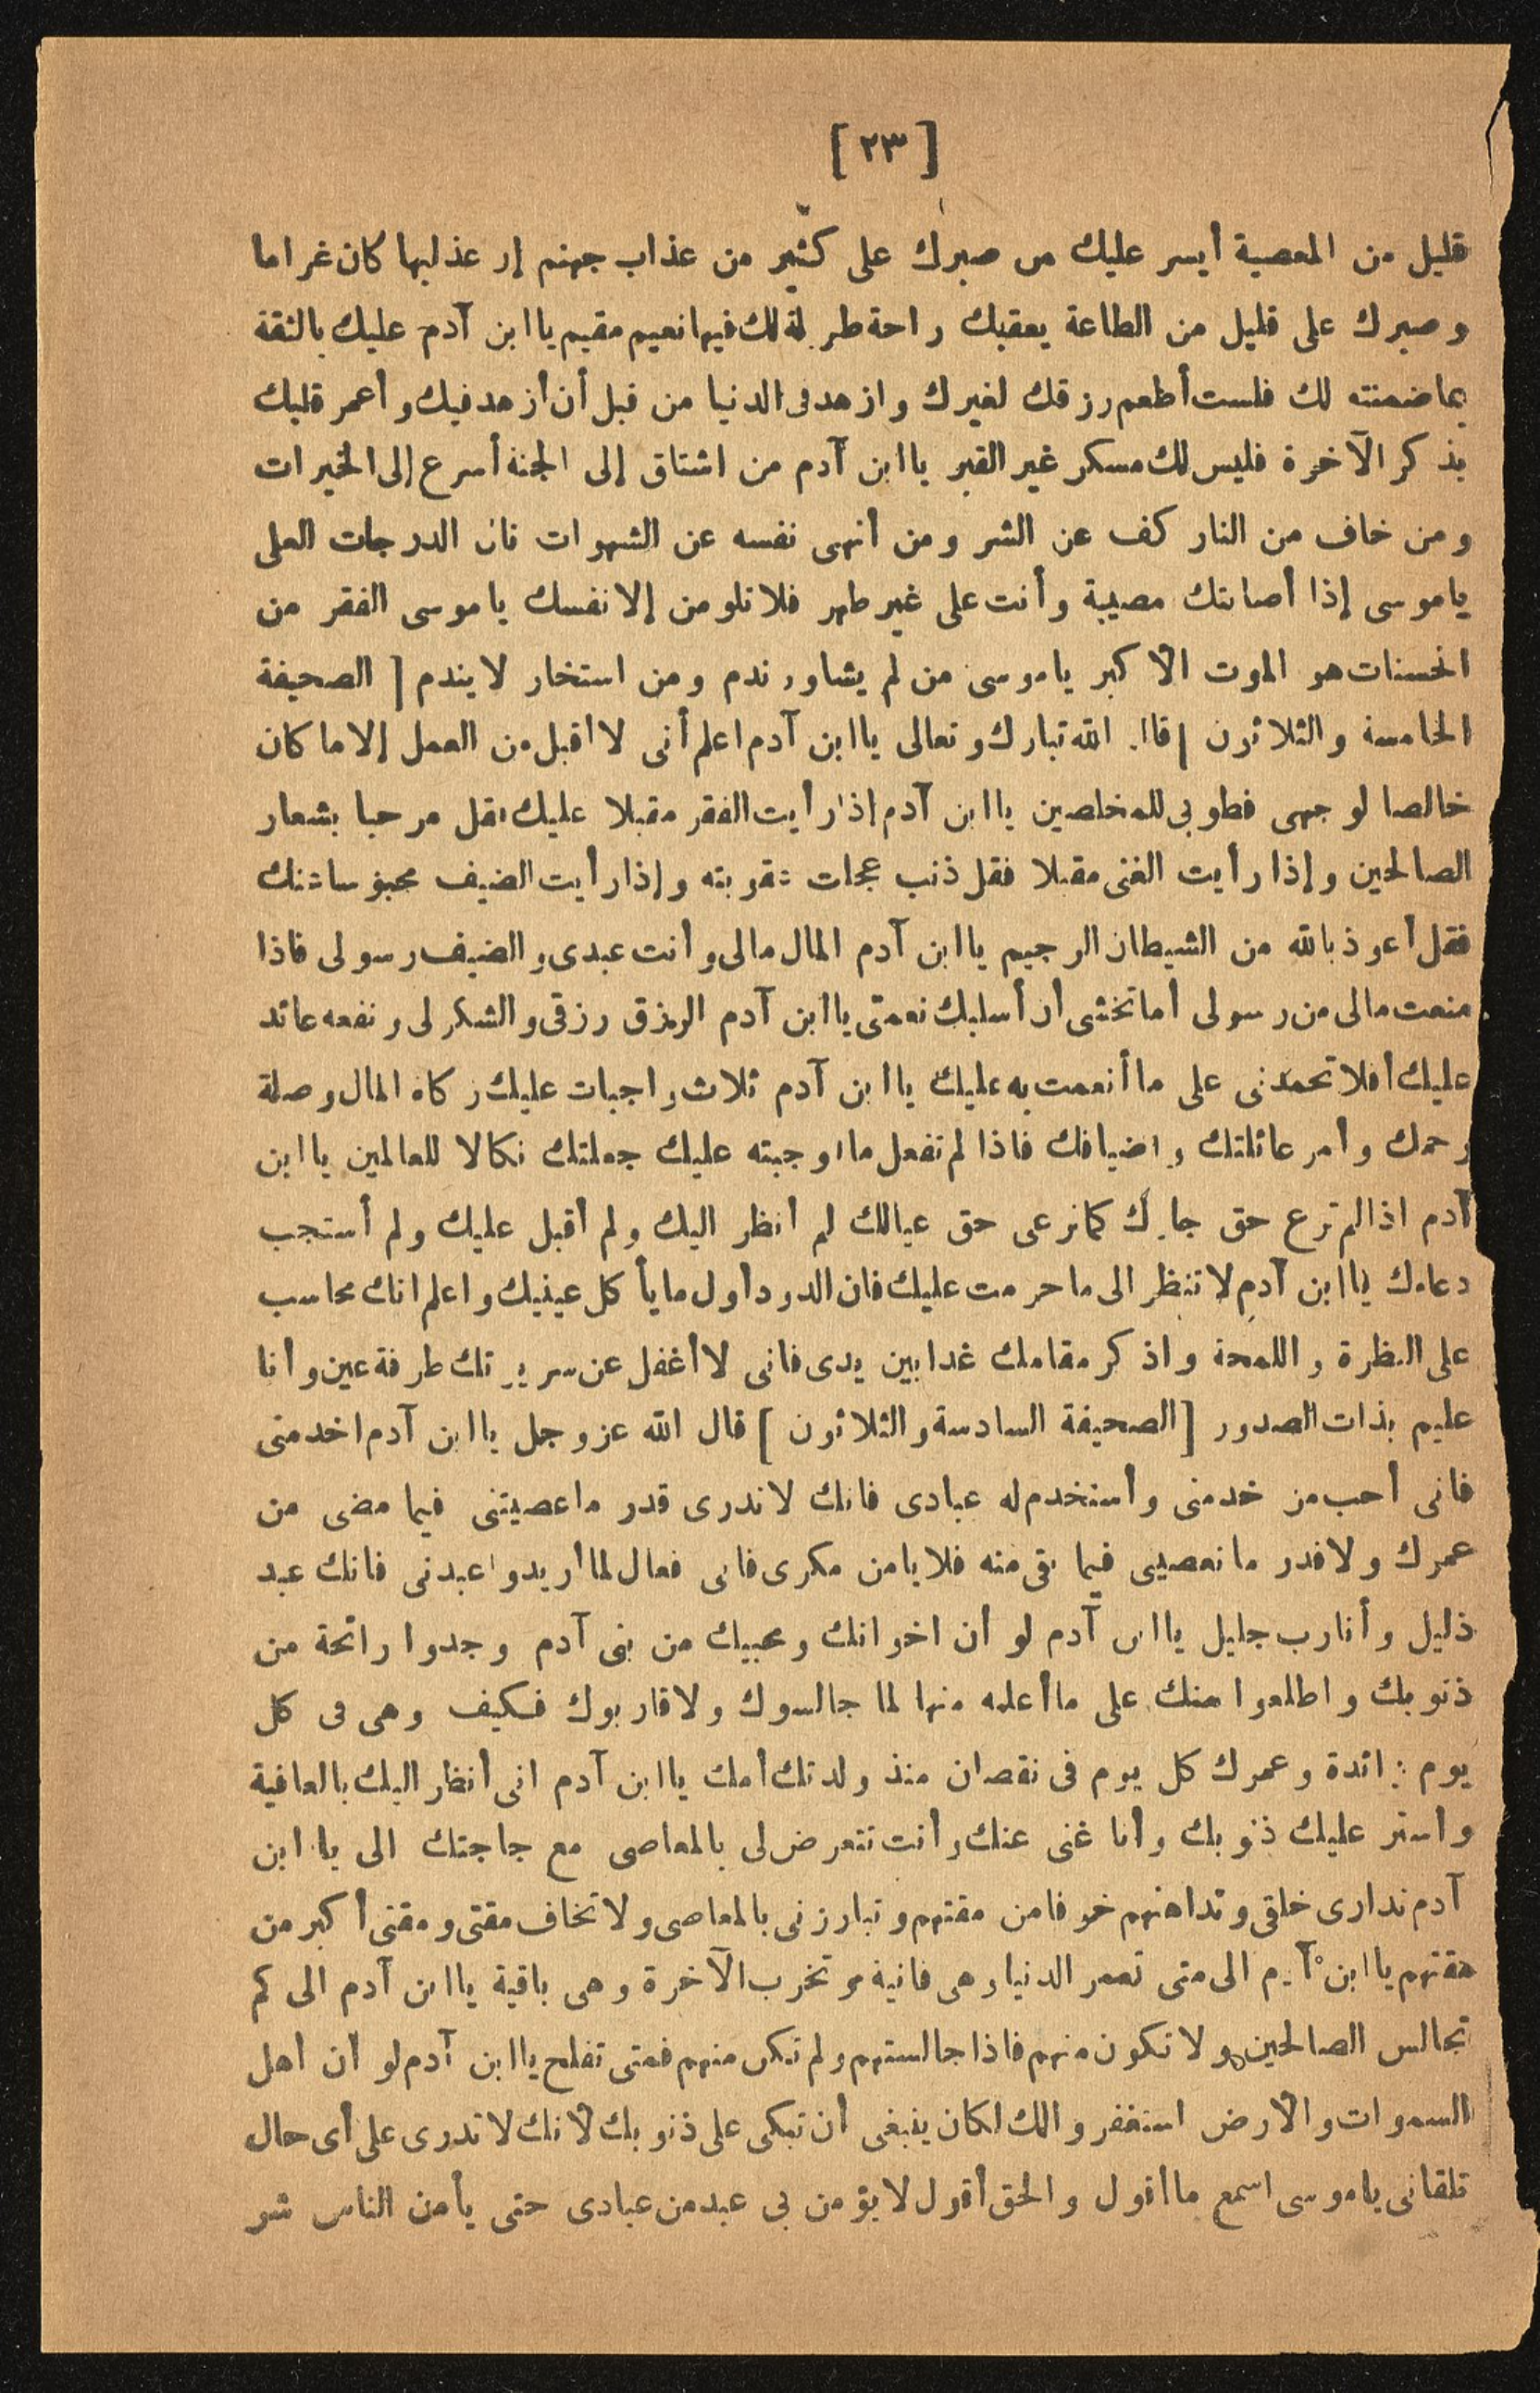 [ ٢٣ ]
قليل من المعصية أيسر عليك من صبرك على كثير من عذاب جهنم إن عذابها كان غراما
وصبرك على قليل من الطاعة يعقبك راحة طويلة لك فيها نعيم مقيم يا ابن آدم عليك بالثقة
بما ضمنته لك فلست أطعم رزقك لغيرك وازهد فى الدنيا من قبل أن أزهد فيك وأعمر قلبك
بذكر الآخرة فليس لك مسكن غير القبر يا ابن آدم من اشتاق إلى الجنة أسرع إلى الخيرات
ومن خاف من النار كف عن الشر ومن أنهى نفسه عن الشهوات نال الدرجات العلى
يا موسى إذا أصابتك مصيبة وأنت على غير طهر فلا تلومن إلا نفسك يا موسى الفقر من
الحسنات هو الموت الأكبر يا موسى من لم يشاور ندم ومن استخار لا يندم [ الصحيفة
الخامسة والثلاثون ] قال الله تبارك وتعالى يا ابن آدم اعلم أنى لا أقبل من العمل إلا ما كان
خالصا لوجهى فطوبى للمخلصين يا ابن آدم إذا رأيت الفقر مقبلا عليك فقل مرحبا بشعار
الصالحين وإذا رأيت الغنى مقبلا فقل ذنب عجلت عقوبته وإذا رأيت الضيف
فقل أعوذ بالله من الشيطان الرجيم يا ابن آدم المال مالى وأنت عبدى والضيف رسولى فاذا
منعت مالى من رسولى أما تخشى أن أسلبك نعمتى يا ابن آدم الرزق رزقى والشكر لى ونفعه عائد
عليك أفلا تحمدنى على ما أنعمت به عليك يا ابن آدم ثلاث واجبات عليك زكاة المال وصلة
رحمك وأمر عائلتك وأضيافك فاذا لم تفعل ما أوجبته عليك جعلتك نكالا للعالمين يا ابن
آدم اذا لم ترع حق جارك كما ترعى حق عيالك لم أنظر اليك ولم أقبل عليك ولم أستجب
دعاءك يا ابن آدم لا تنظر الى ما حرمت عليك فان الدود أول ما يأكل عينيك واعلم انك محاسب
على النظرة واللمحة واذكر مقامك غدا بين يدى فانى لا أغفل عن سريرتك طرفة عين وأنا
عليم بذات الصدور [ الصحيفة السادسة والثلاثون ] قال الله عز وجل يا ابن آدم اخدمنى
فانى أحب من خدمنى وأستخدم له عبادى فانك لا تدرى قدر ما عصيتنى فيما مضى من
عمرك ولا قدر ما تعصينى فيما بقى منه فلا يامن مكرى فانى فعال لما أريد واعبدنى فانك عبد
ذليل وأنا رب جليل يا ابن آدم لو أن اخوانك ومحبيك من بنى آدم وجدوا رائحة من
ذنوبك واطلعوا منك على ما أعلمه منها لما جالسوك ولا قاربوك فكيف وهى فى كل
يوم زائدة وعمرك كل يوم فى نقصان منذ ولدتك أمك يا ابن آدم انى أنظر اليك بالعافية
وأستر عليك ذنوبك وأنا غنى عنك وأنت تتعرض لى بالمعاصى مع حاجتك الى يا ابن
آدم تدارى خلقى وتداهنهم خوفا من مقتهم وتبارزنى بالمعاصى ولا تخاف مقتى ومقتى أكبر من
مقتهم يا ابن آدم الى متى تعمر الدنيا وهى فانية وتخرب الآخرة وهى باقية يا ابن آدم الى كم
تجالس الصالحين ولا تكون منهم فاذا جالستهم ولم تكن منهم فمتى تفلح يا ابن آدم لو أن أهل
السموات والأرض استغفروا لك لكان ينبغى أن تبكى على ذنوبك لأنك لا تدرى على أى حال
تلقانى يا موسى اسمع ما أقول والحق أقول لا يؤمن بى عبد من عبادى حتى يأمن الناس شر